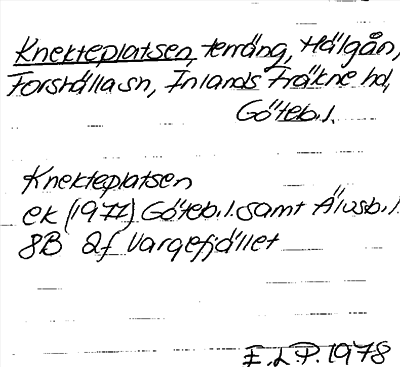 Knekteplatsen, terräng, Hälgån,
Forshälla sn, Inlands Fräkne hd,
Göteb. l.
Knekteplatsen
ek (1977) Göteb. l. samt Älvsb. l.
8B 2f Vargefjället
E.L.P. 1978